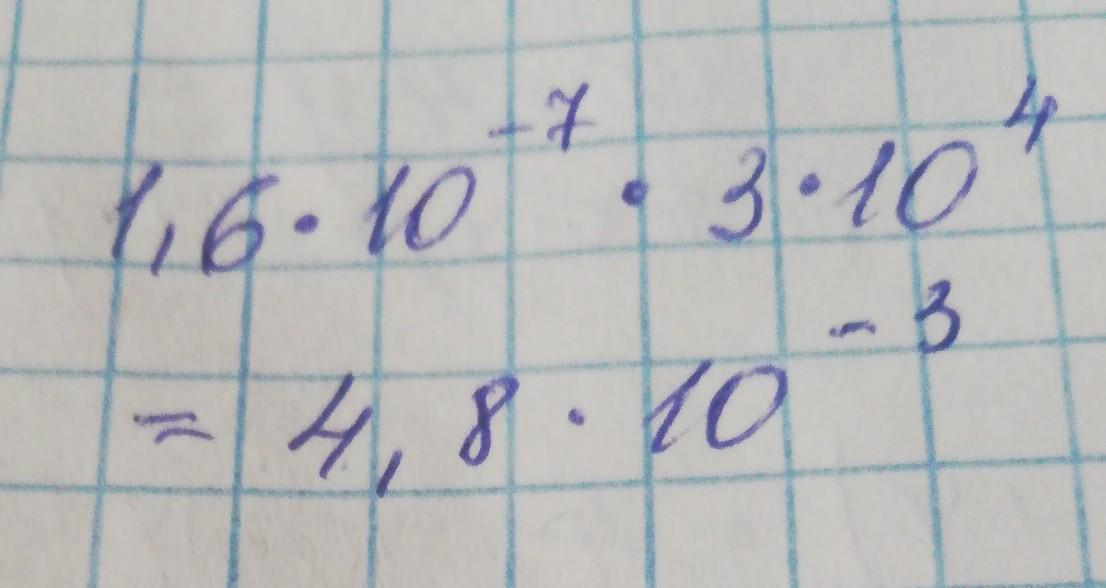 1,6 · 10⁻⁷ · 3 · 10⁴
= 4,8 · 10⁻³